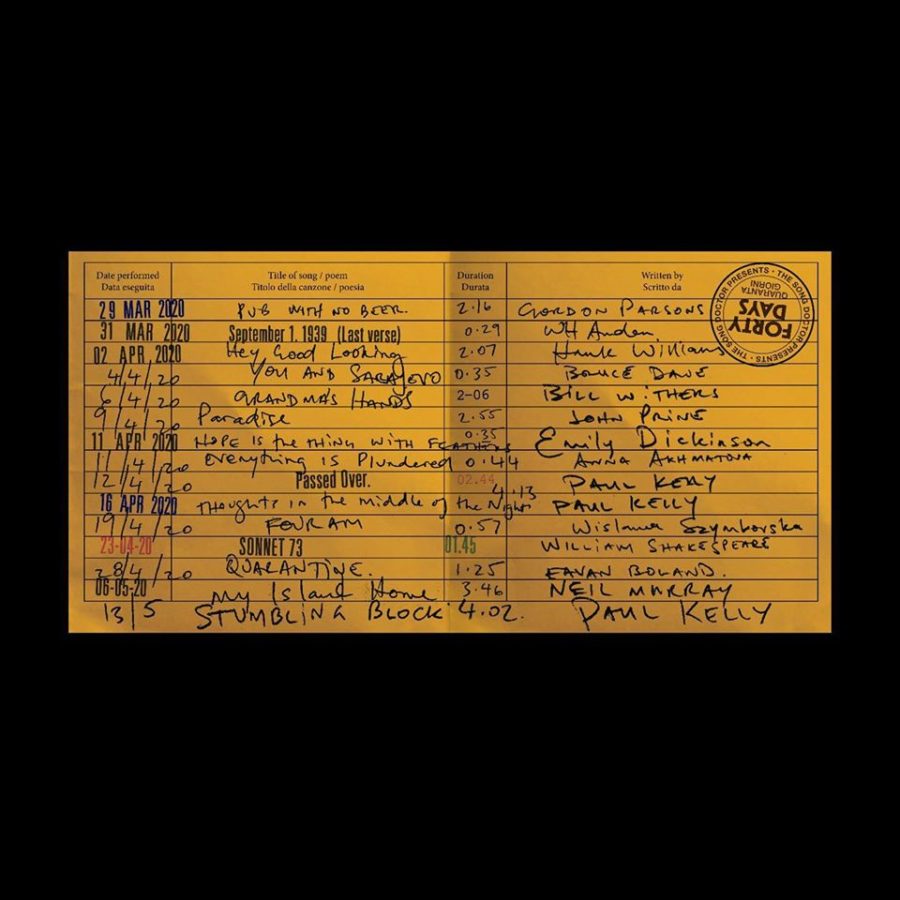 Date performed Title of song / poem Duration Written by
Data eseguita Titolo della canzone / poesia Durata Scritto da
29 MAR 2020 PUB WITH NO BEER. 2.16 GORDON PARSONS
31 MAR 2020 September 1. 1939 (Last verse) 0.29 WH Auden
02 APR 2020 Hey Good Looking 2.07 Hank Williams
4/4/20 YOU AND SARAJEVO 0.35 BRUCE DAWE
6/4/20 GRANDMA'S HANDS 2-06 BILL WITHERS
9/4/20 Paradise 2.55 JOHN PRINE
11 APR 2020 HOPE IS the thing WITH FEATHERS 0.35 Emily Dickinson
11/4/20 Everything is Plundered 0.44 ANNA AKHMATOVA
12/4/20 Passed Over. 02.44 PAUL KELLY
16 APR 2020 THOUGHTS in the middle of the Night 4.13 PAUL KELLY
19/4/20 FOUR AM 0.57 Wislawa Szymborska
23-04-20 SONNET 73 01.45 WILLIAM SHAKESPEARE
28/4/20 QUARANTINE. 1.25 EAVAN BOLAND.
06-05-20 My Island Home 3.46 NEIL MURRAY
13/5 STUMBLING BLOCK 4.02. PAUL KELLY
THE SONG DOCTOR PRESENTS · THE SONG DOCTOR PRESENTS ·
FORTY
DAYS
QUARANTA
GIORNI